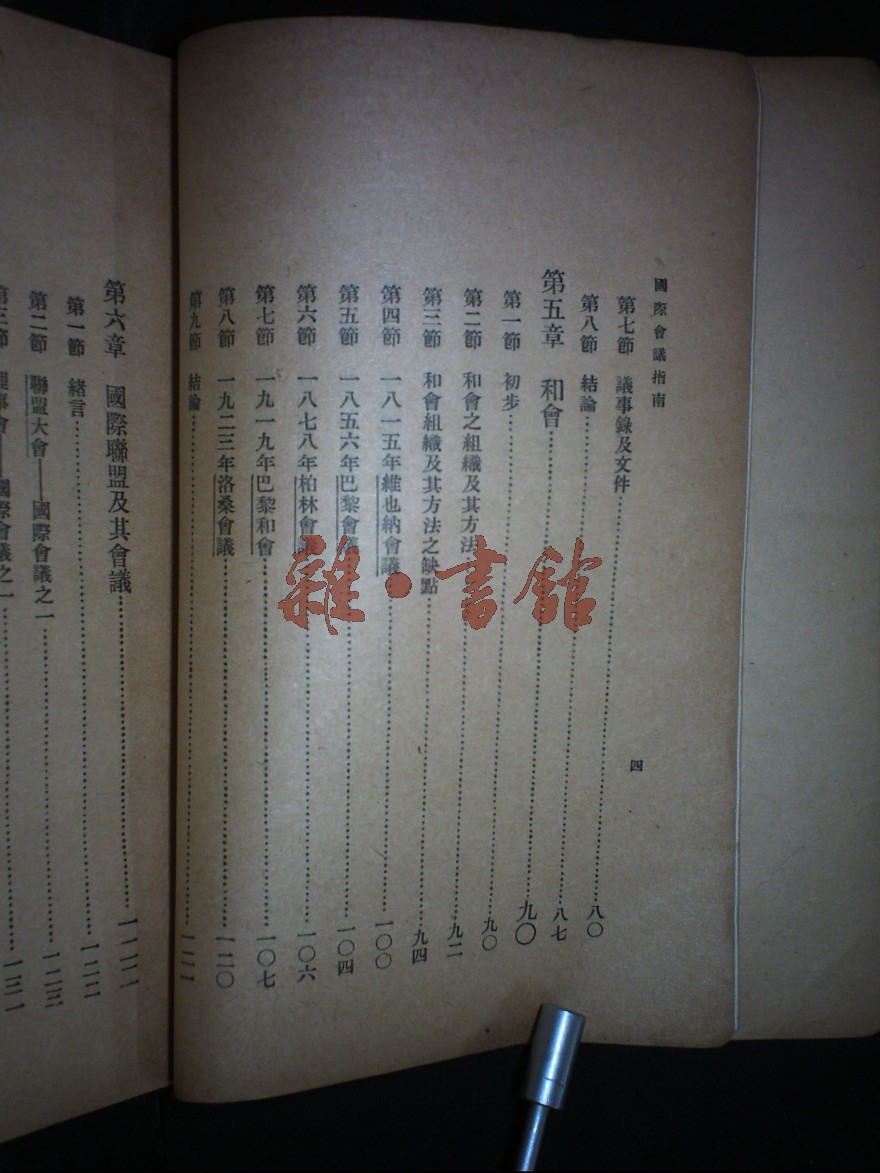 國際會議指南
四
第七節 議事錄及文件 八〇
第八節 結論 八七
第五章 和會 九〇
第一節 初步 九〇
第二節 和會之組織及其方法 九二
第三節 和會組織及其方法之缺點 九四
第四節 一八一五年維也納會議 一〇〇
第五節 一八五六年巴黎會議 一〇四
第六節 一八七八年柏林會議 一〇六
第七節 一九一九年巴黎和會 一〇七
第八節 一九二三年洛桑會議 一二〇
第九節 結論 一二一
第六章 國際聯盟及其會議 一二二
第一節 緒言 一二二
第二節 聯盟大會——國際會議之一 一二三
第三節 理事會——國際會議之一 一三一
雜·書館